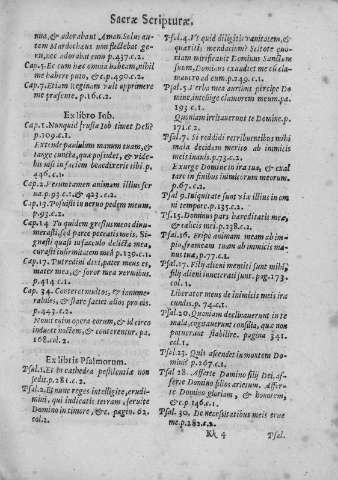 Sacræ Scripturæ.
nua, & adorabant Aman. Solus au-
tem Mardochæus non flectebat ge-
nu, nec adorabat eum p.437.c.2.
Cap.5. Et cum hæc omnia habeam, nihil
me habere puto, & c.p.490.c.2.
Cap.7. Etiam Reginam vult opprimere
me præsente. p.16.c.2.
Ex libro Iob.
Cap.1. Nunquid frustra Iob timet Deū?
p.109.c.1.
Extende paululum manum tuam, &
tange cuncta, quæ possidet, & vide-
bis nisi in faciem benedixerit tibi. p.
446.c.1.
Cap.2. Verumtamen animam illius ser-
ua p.93.c.1, & 423.c.2.
Cap.13. Posuisti in neruo pedem meum.
p.93.c.2.
Cap.14. Tu quidem gressus meos dinu-
merasti, sed parce peccatis meis. Si-
gnasti quasi in sacculo delicta mea,
curasti iniquitatem meā p.139.c.1.
Cap.17. Putredini dixi, pater meus es,
mater mea, & soror mea vermibus.
p.414.c.1.
Cap. 34. Conteret multos, & innume-
rabiles, & stare faciet alios pro eis.
p.443.c.2.
Nouit enim opera eorum, & id circo
inducet noctem, & conterentur. pa.
168.col.2.
Ex libris Psalmorum.
Psal.1. Et in cathedra pestilentiæ non
sedit. p.281.c.2.
Psal.2. Et nunc reges intelligite, erudi-
mini, qui iudicatis terram, seruite
Domino in timore, & c. pagin. 62.
col.2.
Psal.4. Vt quid diligitis vanitatem, &
quæritis mendacium? Scitote quo-
niam mirificauit Dominus Sanctum
suum, Dominus exaudiet me cū cla-
mauero ad eum. p.249.c.1.
Psal.5. Verba mea auribus percipe Do-
mine, intellige clamorem meum. pa.
193 c.1.
Quoniam irritauerunt te Domine. p.
171 c.2.
Psal.7. Si reddidi retribuentibus mihi
mala decidam merito ab inimicis
meis inanis. p.73.c.2.
Exurge Domine in ira tua, & exal-
tare in finibus inimicorum meorum.
p.67.c.2.
Psal 9. Inquinatæ sunt viæ illius in om
ni tempore. p.135.c.2.
Ps.15. Dominus pars hæreditatis meæ,
& calicis mei. p.238.c.2.
Psal.16. Eripe animam meam ab im-
pio, frameam tuam ab inimicis ma-
nus tuæ. p.77.c.1.
Psal.17. Filij alieni mentiti sunt mihi,
filij alieni inueterati sunt. pag. 173.
col.1.
Liberator meus de inimicis meis ira
cundis. p.74.c.1.
Psal.20. Quoniam declinauerunt in te
mala, cogitauerunt consilia, quæ non
potuerunt stabilire. pagina 341.
col.1.
Psal.23. Quis ascendet in montem Do-
mini? p.267.c.1.
Psal 28. Afferte Domino filij Dei, af-
ferte Domino filios arietum. Affer-
te Domino gloriam, & honorem,
& c.p 146.c.1.
Psal. 30. De necessitatibus meis erue
me. p.282.c.2.
Kk 4
Psal.